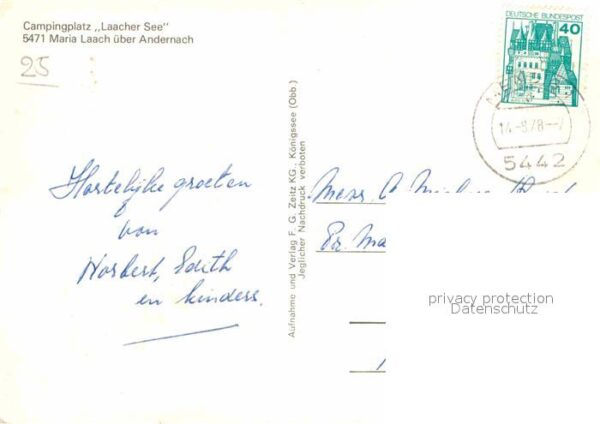 Campingplatz „Laacher See"
5471 Maria Laach über Andernach
25
DEUTSCHE BUNDESPOST
40
14.-8.78.--7
5442
Hartelijke groeten
van
Norbert, Edith
en kinders.
Aufnahme und Verlag F. G. Zeitz KG, Königssee (Obb.)
Jeglicher Nachdruck verboten
privacy protection
Datenschutz